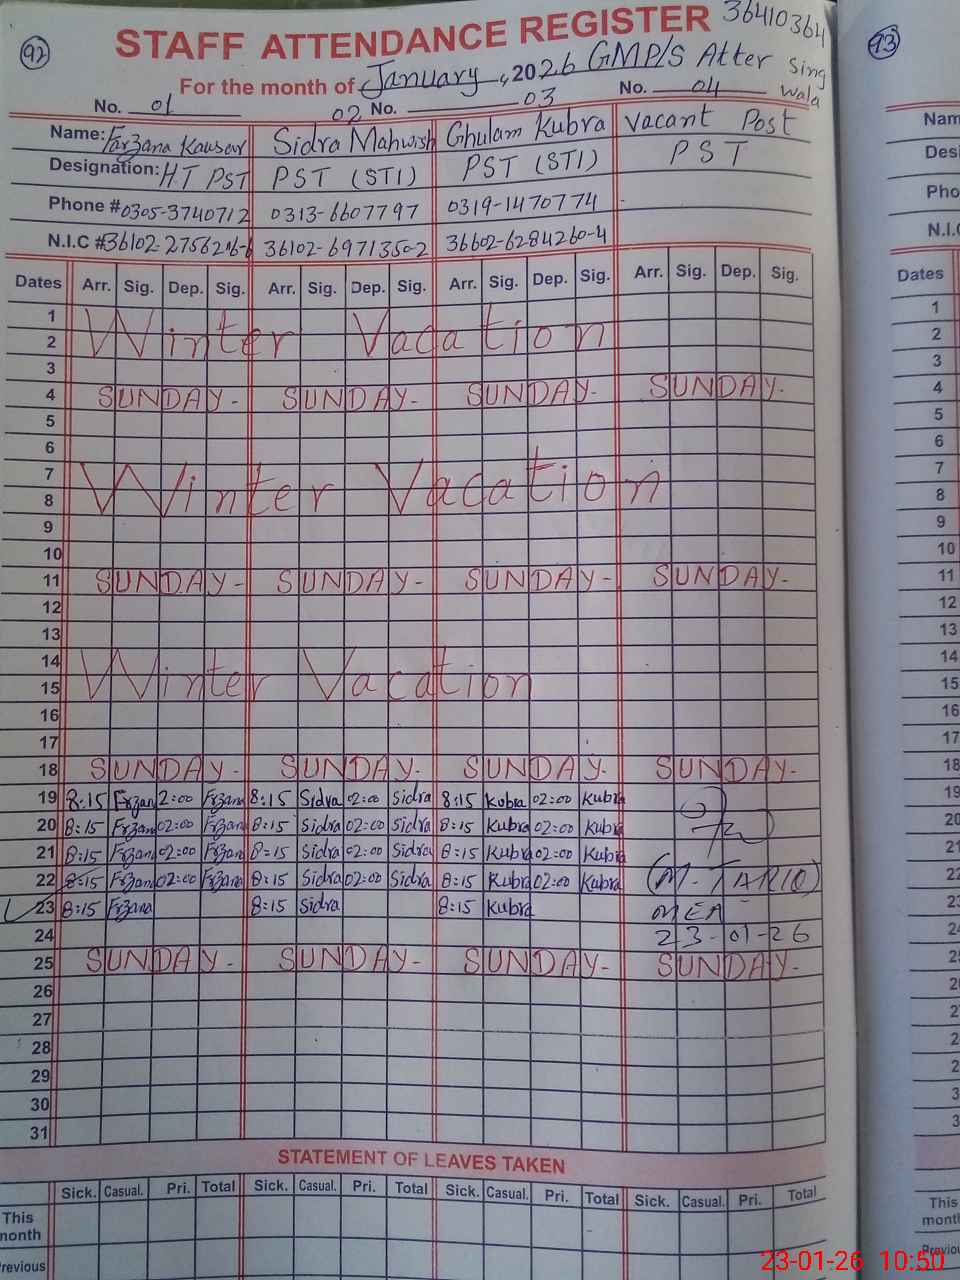 92
STAFF ATTENDANCE REGISTER 36410364
For the month of January, 2026 GMP/S Atter Sing Wala
No. 01 02 No. 03 No. 04
Name: Farzana Kausar Sidra Mahwish Ghulam Kubra Vacant Post
Designation: H.T PST PST (STI) PST (STI) PST
Phone # 0305-3740712 0313-6607797 0319-1470774
N.I.C # 36102-2756216-6 36102-6971350-2 36602-6284260-4
Dates Arr. Sig. Dep. Sig. Arr. Sig. Dep. Sig. Arr. Sig. Dep. Sig. Arr. Sig. Dep. Sig.
1
2 Winter Vacation
3
4 SUNDAY- SUNDAY- SUNDAY- SUNDAY-
5
6
7
8 Winter Vacation
9
10
11 SUNDAY- SUNDAY- SUNDAY- SUNDAY-
12
13
14
15 Winter Vacation
16
17
18 SUNDAY- SUNDAY- SUNDAY- SUNDAY-
19 8:15 Frzana 2:00 Frzana 8:15 Sidra 02:00 Sidra 8:15 Kubra 02:00 Kubra
20 8:15 Frzana 02:00 Frzana 8:15 Sidra 02:00 Sidra 8:15 Kubra 02:00 Kubra
21 8:15 Frzana 02:00 Frzana 8:15 Sidra 02:00 Sidra 8:15 Kubra 02:00 Kubra
22 8:15 Frzana 02:00 Frzana 8:15 Sidra 02:00 Sidra 8:15 Kubra 02:00 Kubra (M. TARIQ)
23 8:15 Frzana 8:15 Sidra 8:15 Kubra MEA
24 23-01-26
25 SUNDAY- SUNDAY- SUNDAY- SUNDAY-
26
27
28
29
30
31
STATEMENT OF LEAVES TAKEN
Sick. Casual. Pri. Total Sick. Casual. Pri. Total Sick. Casual. Pri. Total Sick. Casual. Pri. Total
This month
Previous
93
Dates
1
2
3
4
5
6
7
8
9
10
11
12
13
14
15
16
17
18
This
23-01-26 10:50